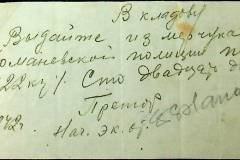 В кладовую
Выдайте из мерчука
романевской полиции п
22 кг/. Сто двадцать д
Претор
942г.
Нач. эк. от.